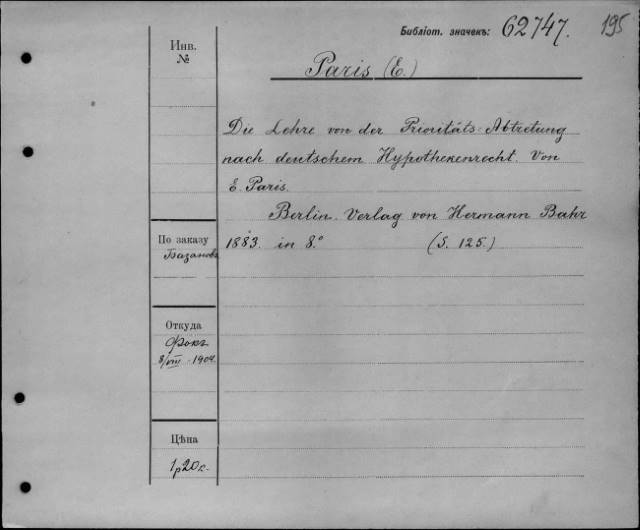 Библіот. значекъ: 62747. 195
Инв.
№
Paris (E.)
Die Lehre von der Prioritäts-Abtretung
nach deutschem Hypothekenrecht. Von
E. Paris.
Berlin. Verlag von Hermann Bahr
1883. in 8.° (S. 125.)
По заказу
Базановъ
Откуда
Фокъ
8/VIII 1904
Цѣна
1 р 20 к.